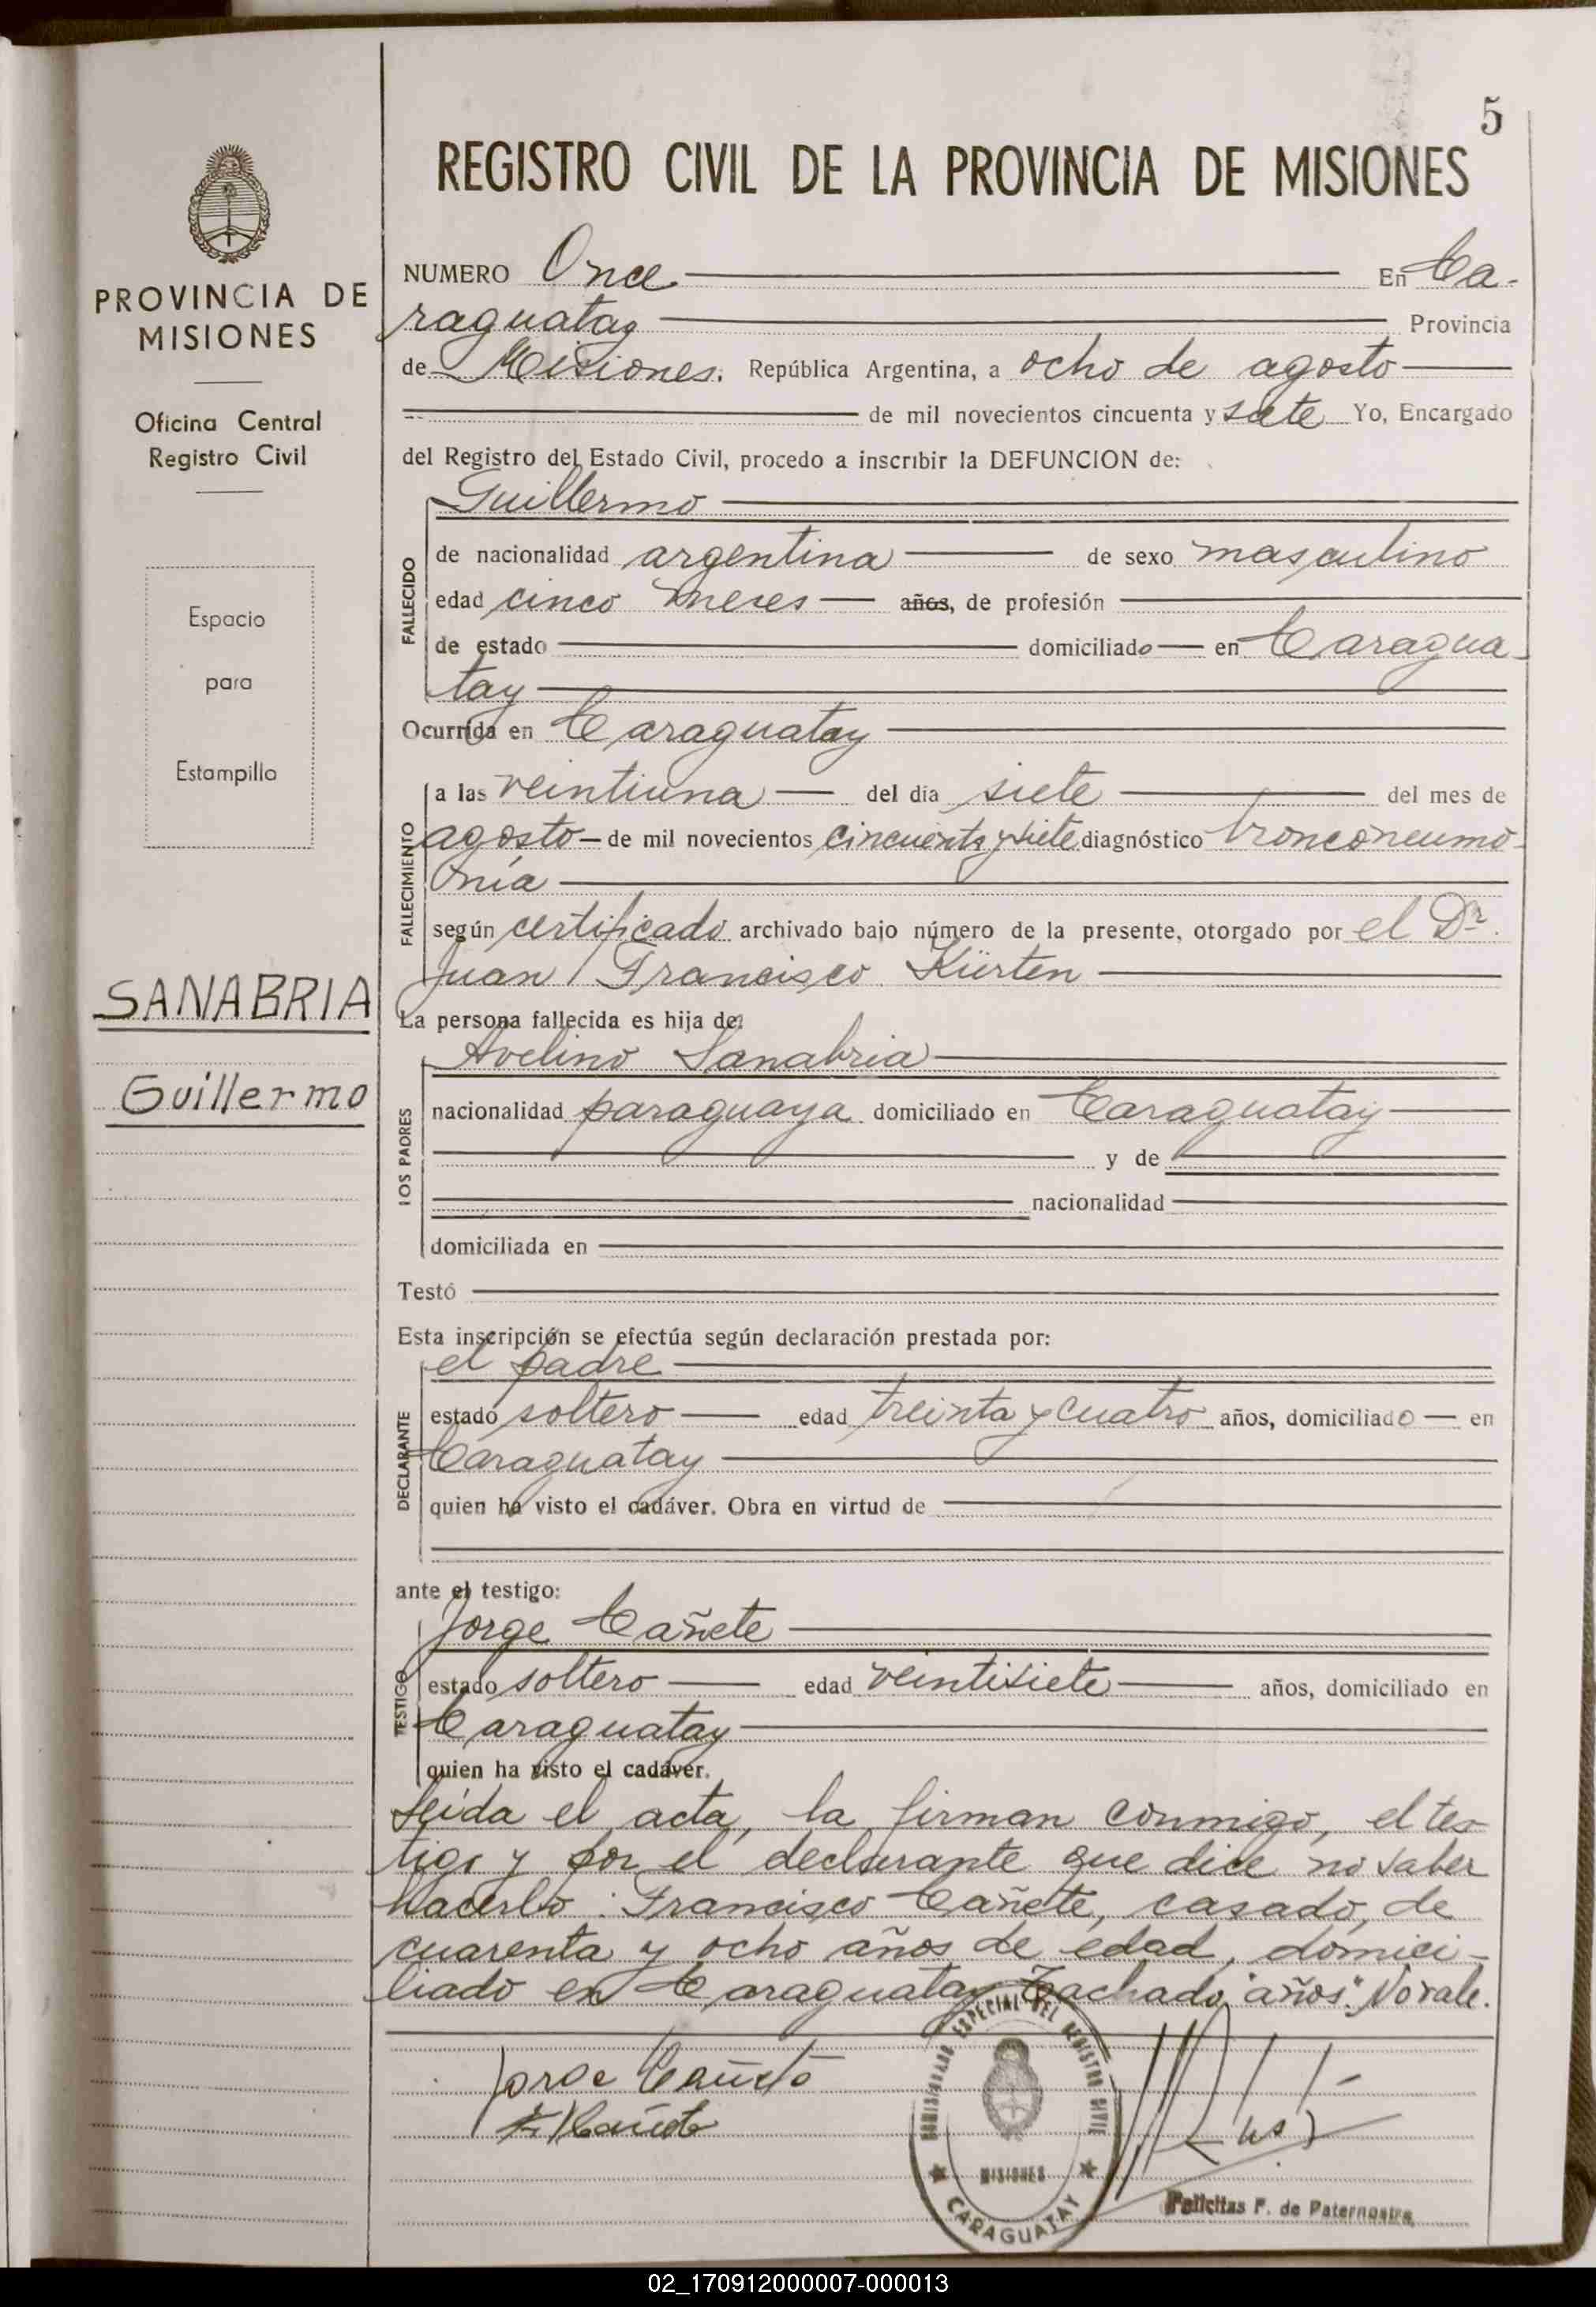 5
REGISTRO CIVIL DE LA PROVINCIA DE MISIONES
PROVINCIA DE
MISIONES
Oficina Central
Registro Civil
Espacio
para
Estampilla
SANABRIA
Guillermo
NUMERO Once En Ca-
raguatay Provincia
de Misiones. República Argentina, a ocho de agosto
de mil novecientos cincuenta y siete Yo, Encargado
del Registro del Estado Civil, procedo a inscribir la DEFUNCION de:
Guillermo
FALLECIDO
de nacionalidad argentina de sexo masculino
edad cinco meses años, de profesión
de estado domiciliado en Caragua-
tay
Ocurrida en Caraguatay
FALLECIMIENTO
a las veintiuna del día siete del mes de
agosto de mil novecientos cincuenta y siete diagnóstico bronconeumo-
nía
según certificado archivado bajo número de la presente, otorgado por el Dr.
Juan Francisco Kürten
La persona fallecida es hija de:
Avelino Sanabria
LOS PADRES
nacionalidad paraguaya domiciliado en Caraguatay
y de
nacionalidad
domiciliada en
Testó
Esta inscripción se efectúa según declaración prestada por:
el padre
DECLARANTE
estado soltero edad treinta y cuatro años, domiciliado en
Caraguatay
quien ha visto el cadáver. Obra en virtud de
ante el testigo:
Jorge Cañete
TESTIGO
estado soltero edad veintisiete años, domiciliado en
Caraguatay
quien ha visto el cadáver.
Leída el acta, la firman conmigo, el tes-
tigo y por el declarante que dice no saber
hacerlo: Francisco Cañete, casado, de
cuarenta y ocho años de edad, domici-
liado en Caraguatay Tachado "años" No vale.
Jorge Cañete
F. Cañete
ESPECIAL DEL REGISTRO CIVIL
MISIONES
CARAGUATAY
Felicitas F. de Paternostro
02_170912000007-000013